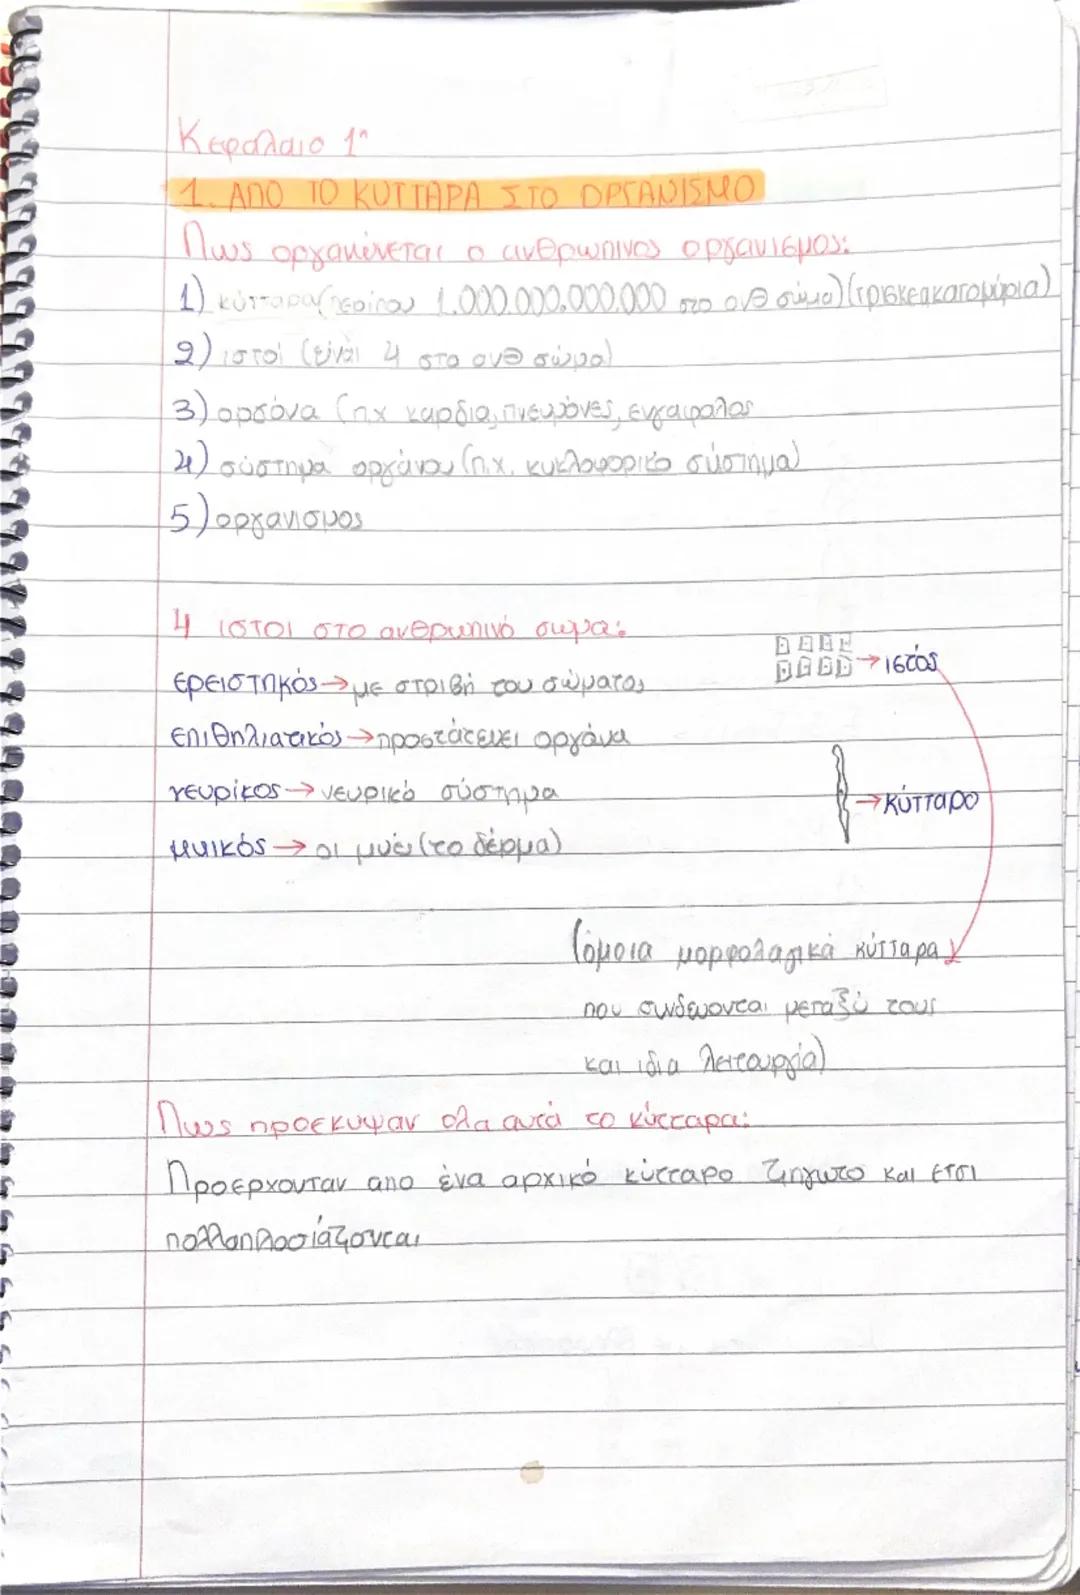 Κεφαλαιο 1°
1. ΑΠΟ ΤΟ ΚΥΤΤΑΡΑ ΣΤΟ ΟΡΓΑΝΙΣΜΟ
Πως οργανώνεται ο ανθρωπινος οργανισμος:
1) κύτταρα (περίπου 1.000.000.000.000 στο ανθ σώμα) (τρισκεακατομύρια)
2) ιστοί (είναι 4 στο ανθ σώμα)
3) οργάνα (π.χ καρδια, πνευμόνες, ενγαιφαλος
4) σύστημα οργάνου (π.χ. κυκλοφορικό σύστημα)
5) οργανισμος
4 ιστοι στο ανθρωπινό σωμα:
ερειστηκός → με στριβή του σώματος
επιθηλιατικός → προστάτευει οργάνα
νευρίκος → νευρικό σύστημα
μυικός → οι μυέ (το δέρμα)
→ ιστός
→ κύτταρο
(όμοια μορφολαγικά κύτταρα
που συνδεώονται μεταξύ τους
και ιδια λειτουργία)
Πως προεκυψαν ολα αυτά το κύτταρα:
Προερχουταν απο ένα αρχικό κύτταρο ζηγωτο και ετσι
πολλαπλασιάζονται